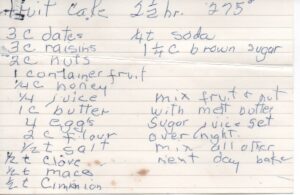 fruit cake 2 1/2 hr. 275°
3 c dates 1/4 t soda
3 c raisins 1 1/4 c brown sugar
2 c nuts
1 container fruit
1/4 c honey
1/4 juice mix fruit & nut
1 c butter with melt butter
4 eggs sugar juice set
2 c flour over night.
1/2 t salt mix all other
1/2 t clove next day bake
1/2 t mace
1/2 t cinnion